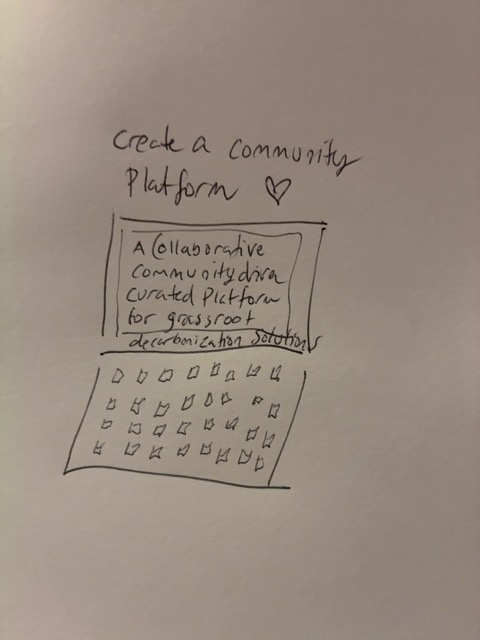 Create a community
Platform
A Collaborative
Community driva
Curated Platform
for grassroot
decarbonization Solutions